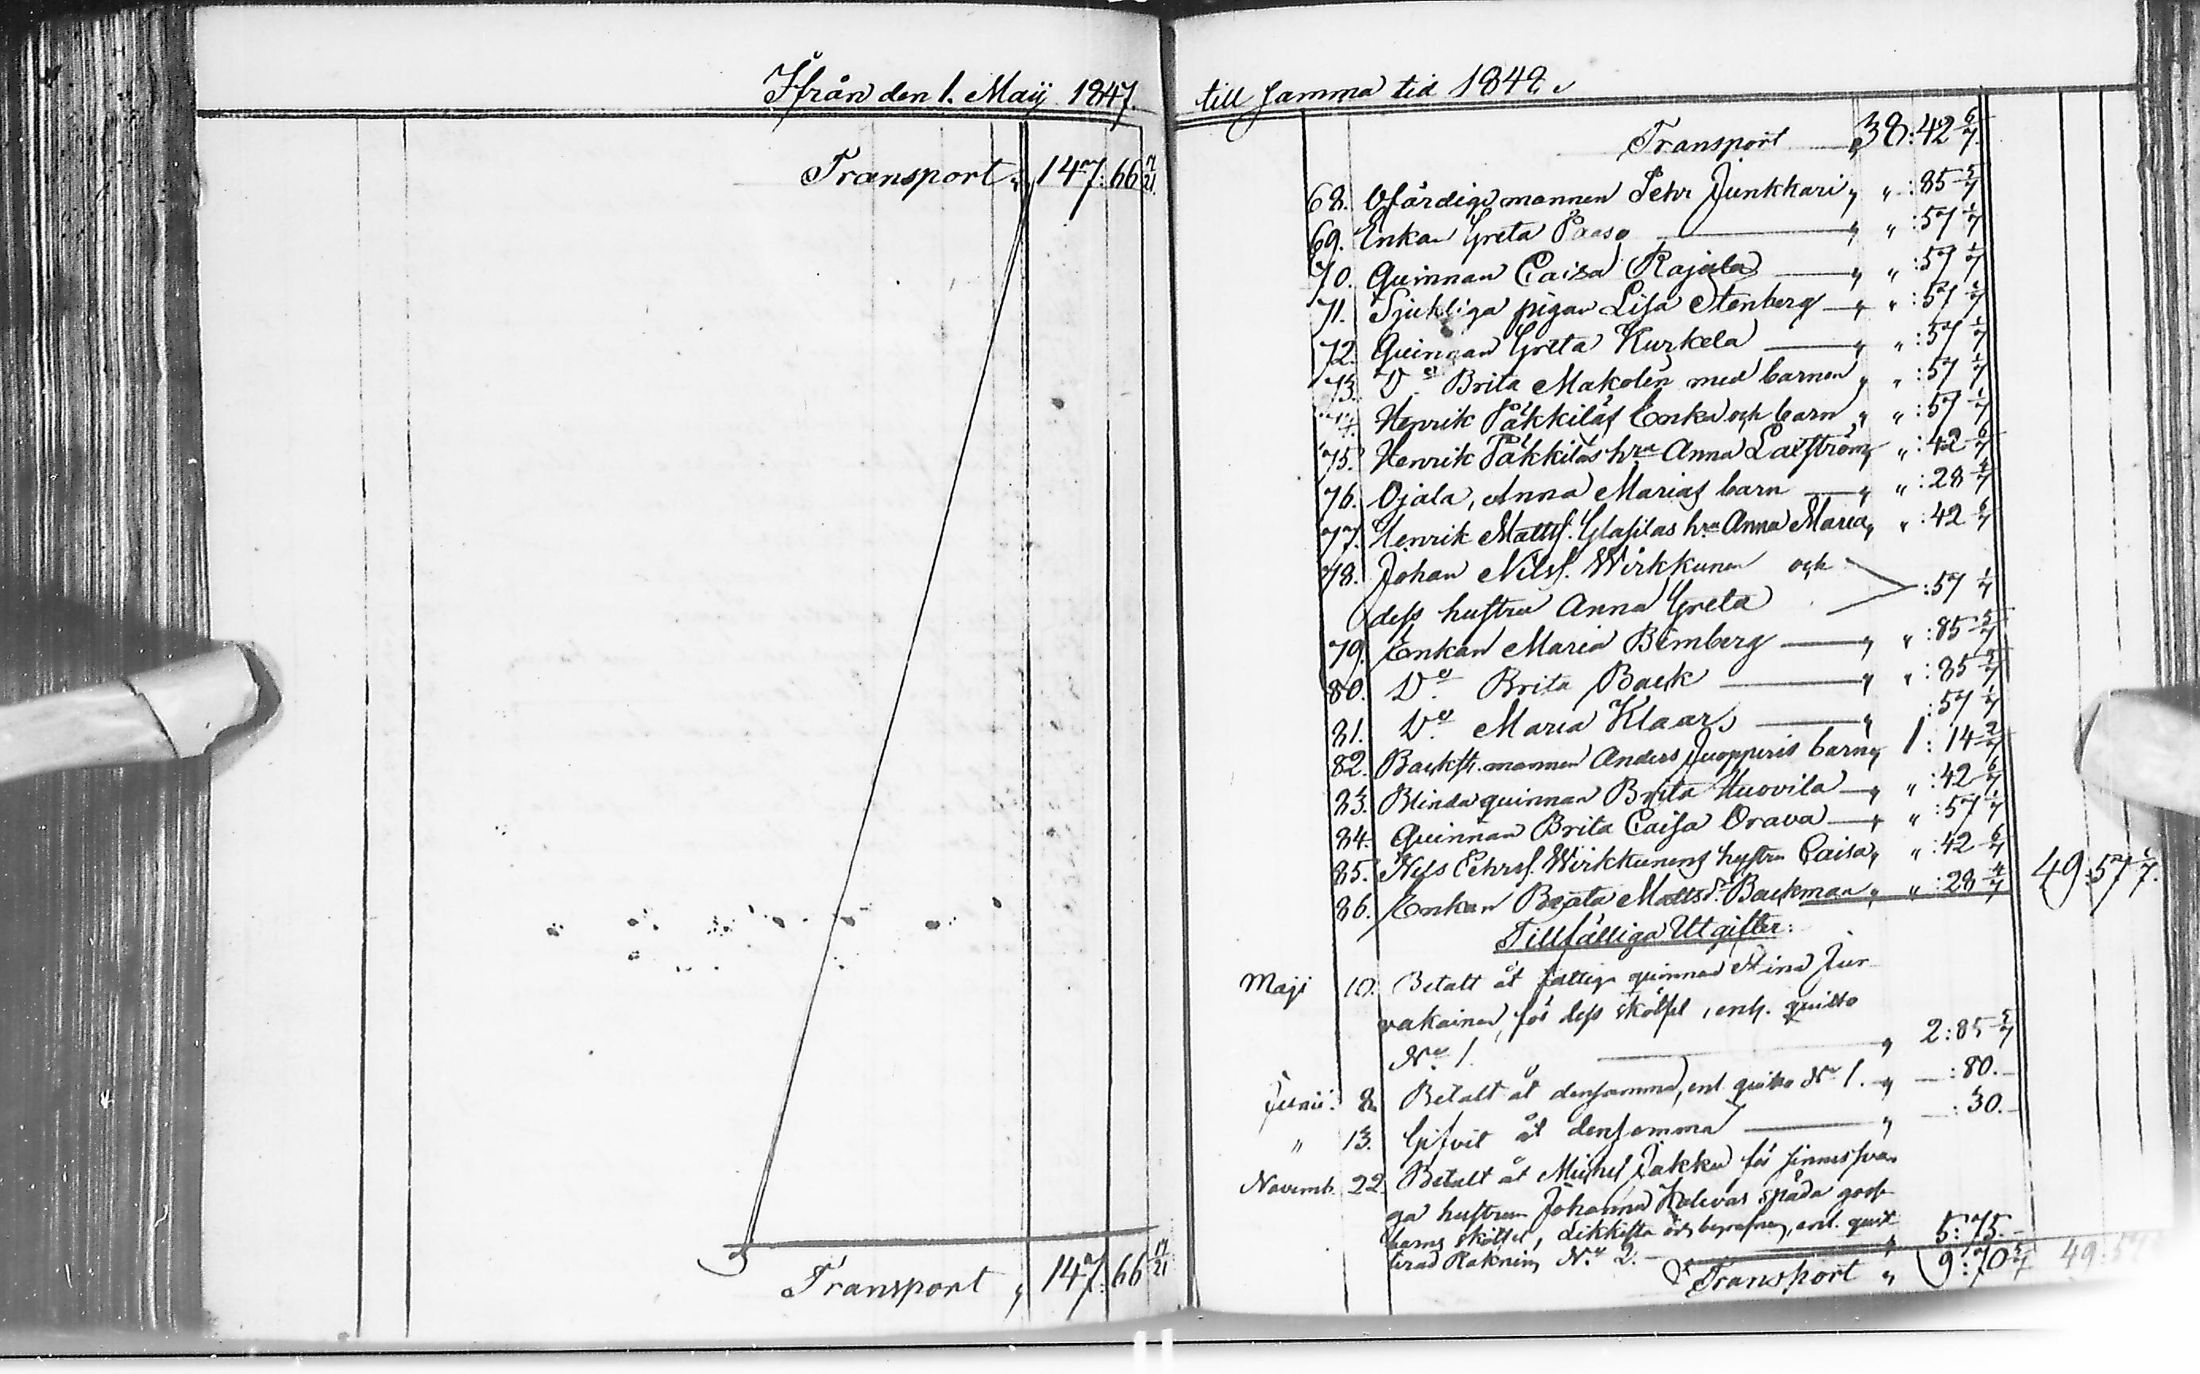 Ifrån den 1. Maij 1847.
Transport „ 147: 66 17/21
Transport „ 147: 66 17/21
till samma tid 1848.
Transport „ 38: 42 6/7.
68. Ofärdige mannen Pehr Junkkari „ „ : 85 5/7
69. Enkan Greta Paaso „ „ : 57 1/7
70. Quinnan Caisa Rajala „ „ : 57 1/7
71. Sjukliga pigan Lisa Stenberg „ „ : 57 1/7
72. Quinnan Greta Kurkela „ „ : 57 1/7
73. Do Brita Makolin med barnen „ „ : 57 1/7
74. Henrik Påkkiläs Enka och barn „ „ : 57 1/7
75. Henrik Påkkiläs hru Anna Laxström „ „ : 42 6/7
76. Ojala, Anna Marias barn „ „ : 28 4/7
77. Henrik Matts. Glasilas hru Anna Maria „ „ : 42 6/7
78. Johan Nilss. Wirkkunen och
dess hustru Anna Greta : 57 1/7
79. Enkan Maria Bimberg „ „ : 85 5/7
80. Do Brita Back „ „ : 85 5/7
81. Do Maria Klaars „ : 57 1/7
82. Backst. mannen Anders Juopperis barn „ 1: 14 2/7
83. Blinda quinnan Brita Huovila „ „ : 42 6/7
84. Quinnan Brita Caisa Orava „ „ : 57 1/7
85. Nils Pehrss. Wirkkunens hustru Caisa „ „ : 42 6/7
86. Enkan Beata Mattsd. Backman „ „ : 28 4/7 49: 57 1/7.
Tillfälliga Utgifter:
Maji 10. Betalt åt fattiga quinnan Stina Jur-
vakainen, för dess skötsel, enl. quitto
No 1. „ 2: 85 5/7
Junii. 8. Betalt åt densamma, enl. quitto No 1. „ : 80.
„ 13. Gifvit åt densamma „ : 30.
Novemb. 22. Betalt åt Michel Jakku för sinnessva-
ga hustrun Johanna Kalevas späda goss-
barns skötsel, likkista och begrafning, enl. quit-
terad Räkning No 2. „ 5: 75.
Transport „ 9: 70 5/7 49: 57